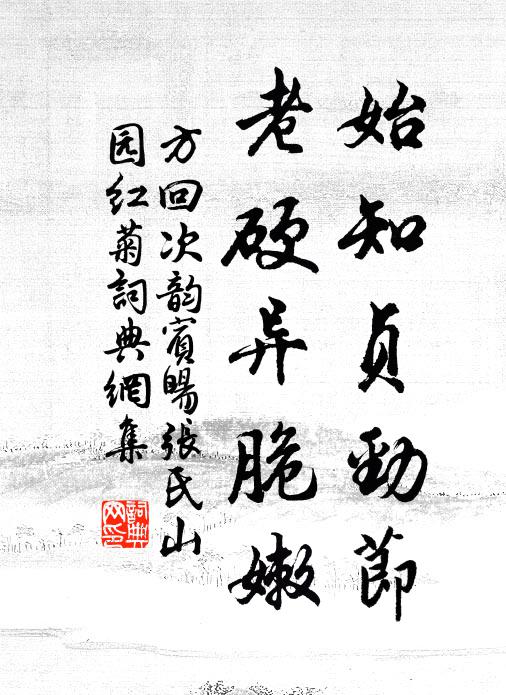 始知貞勁節
老硬异脆嫩
方回次韵賓暘張氏山
园红菊詞典網集
詞典
网印